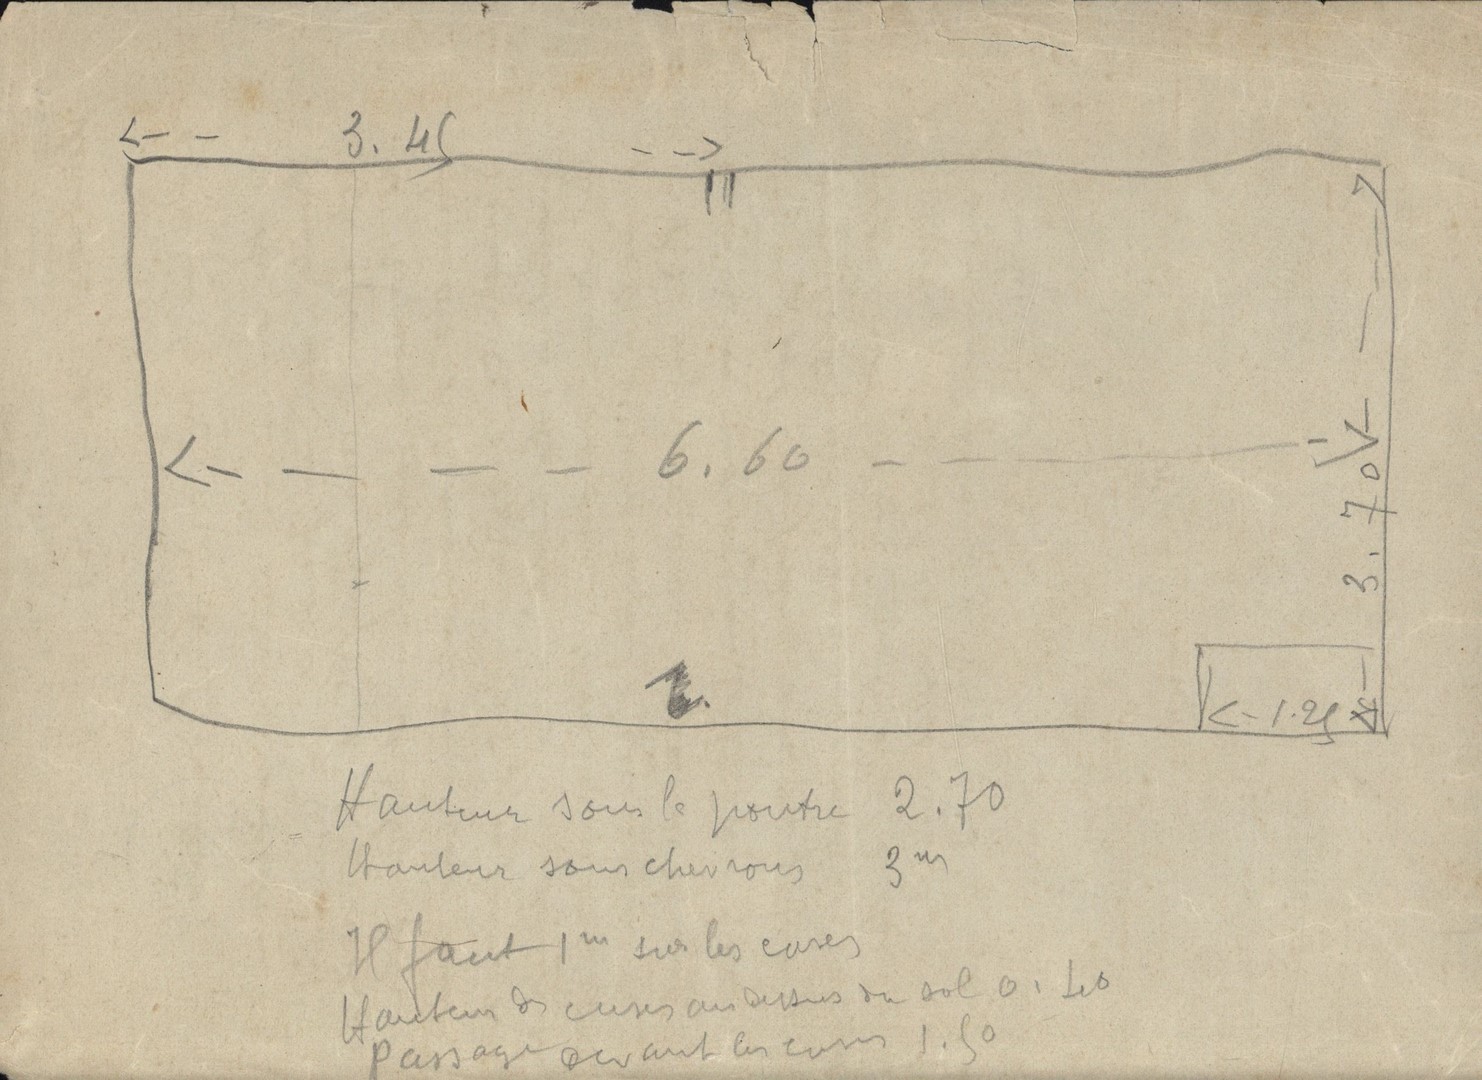 3.45
6.60
3.70
1.25
Hauteur sous la poutre 2.70
Hauteur sous chevrons 3m
Il faut 1m sur les cuves
Hauteur des cuves au dessus du sol 0.40
Passage devant les cuves 1.50